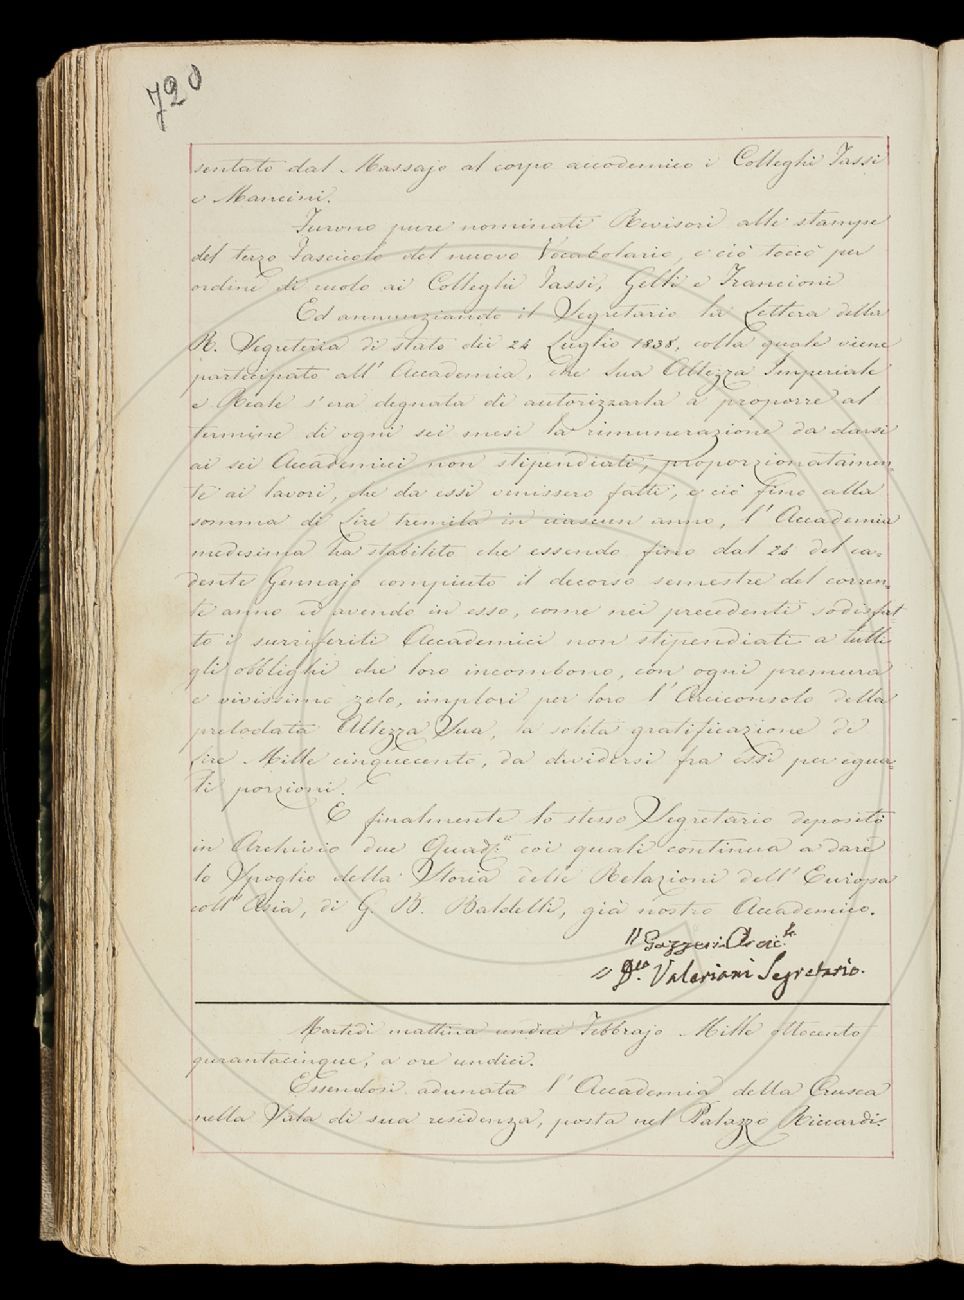 720
sentato dal Massajo al corpo accademico i Colleghi Tassi
e Mancini.
Furono pure nominati Revisori alle stampe
del terzo Fascicolo del nuovo Vocabolario, e ciò toccò per
ordine di ruolo ai Colleghi Tassi, Gelli e Francioni
Ed annunziando il Segretario la Lettera della
R. Segreteria di stato dei 24 Luglio 1838, colla quale viene
partecipato all' Accademia, che Sua Altezza Imperiale
e Reale s'era degnata di autorizzarla a proporre al
termine di ogni sei mesi la rimunerazione da darsi
ai sei Accademici non stipendiati, proporzionatamen,
te ai lavori, che da essi venissero fatti, e ciò fino alla
somma di Lire tremila in ciascun anno, l' Accademia
medesima ha stabilito che essendo fino dal 24 del ca=
dente Gennajo compiuto il decorso semestre del corren,
te anno ed avendo in esso, come nei precedenti sodisfat
to i surriferiti Accademici non stipendiati a tutti
gli obblighi che loro incombono, con ogni premura
e vivissimo zelo, implori per loro l' Arciconsolo della
prelodata Altezza Sua, la solita gratificazione di
Lire Mille cinquecento, da dividersi fra essi per egua-
li porzioni.
E finalmente lo stesso Segretario depositò
in Archivio due Quad.ni coi quali continua a dare
lo Spoglio della Storia delle Relazioni dell' Europa
coll' Asia, di G. B. Baldelli, già nostro Accademico.
" Gazzeri Arcic.lo
" D.co Valeriani Segretario.
Martedì mattina undici Febbrajo Mille ottocento
quarantacinque, a ore undici.
Essendosi adunata l' Accademia della Crusca
nella Sala di sua residenza, posta nel Palazzo Riccardi,